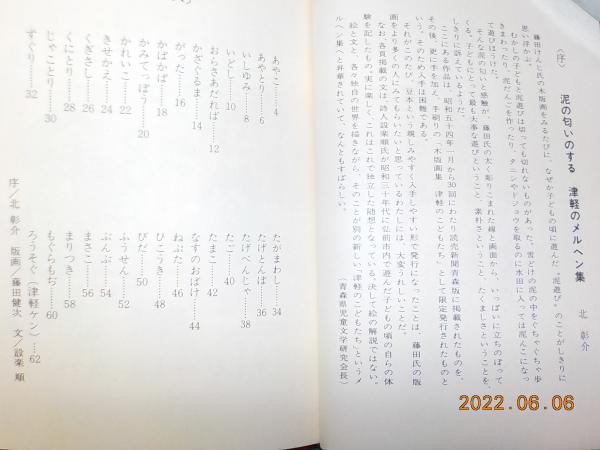 〈序〉
泥の匂いのする　津軽のメルヘン集
北　彰介
藤田けんじ氏の木版画をみるたびに、なぜか子どもの頃に遊んだ〝泥遊び〟のことがしきりに
思い浮かぶ。
むかしの子どもと泥遊びは切っても切れないものがあった。雪どけの泥の中をぐちゃぐちゃ歩
きまわったり、泥だんごを作ったり、タニシやドジョウを取るのに水田に入っては泥んこになっ
て遊びほうけた。
そんな泥の匂いと感触が、藤田氏の太く彫りこまれた線と画面から、いっぱいに立ちのぼって
くる。子どもにとって最も大事な遊びということ、素朴さということ、たくましさということを、
しきりに訴えているようだ。
ここにある作品は、昭和五十四年一月から30回にわたり読売新聞青森版に掲載されたものを、
その後、更に手を加え、手刷りの「木版画集　津軽のこどもたち」として限定発行されたものと
いう。そのため入手は困難である。
それがこのたび、豆本という親しみやすく入手しやすい形で発行になったことは、藤田氏の版
画をより多くの人にみてもらいたいと思っているわたしには、大変うれしいことだ。
なお、各頁掲載の文は詩人設楽順氏が昭和三十年代に弘前市内で遊んだ子どもの頃の自らの体
験を記したもので、実に楽しく、これはこれで独立した随想となっている。決して絵の解説ではない。
絵と文と、各々独自の世界を描きながら、そのことが別の新しい「津軽のこどもたち」というメ
ルヘン集へと昇華されていて、なんともすばらしい。
（青森県児童文学研究会長）
あやこ……4
あやとり……6
いしゆみ……8
いどし……10
おらさあだれば……12
かざぐるま……14
がった……16
かぱかぱ……18
かみてっぽう……20
かれいこ……22
きせかえ……24
くぎさし……26
くにとり……28
じゃことり……30
すぐり……32
たがまわし……34
たげとんぼ……36
たげべんじゃ……38
たこ……40
たまこ……42
なすのおばけ……44
ねぷた……46
ひこうき……48
びだ……50
ふうせん……52
ぶんぶ……54
まさこ……56
まりつき……58
もぐらもぢ……60
ろうそぐ（津軽ケン）……62
序／北　彰介　版画／藤田健次　文／設楽　順
2022.06.06